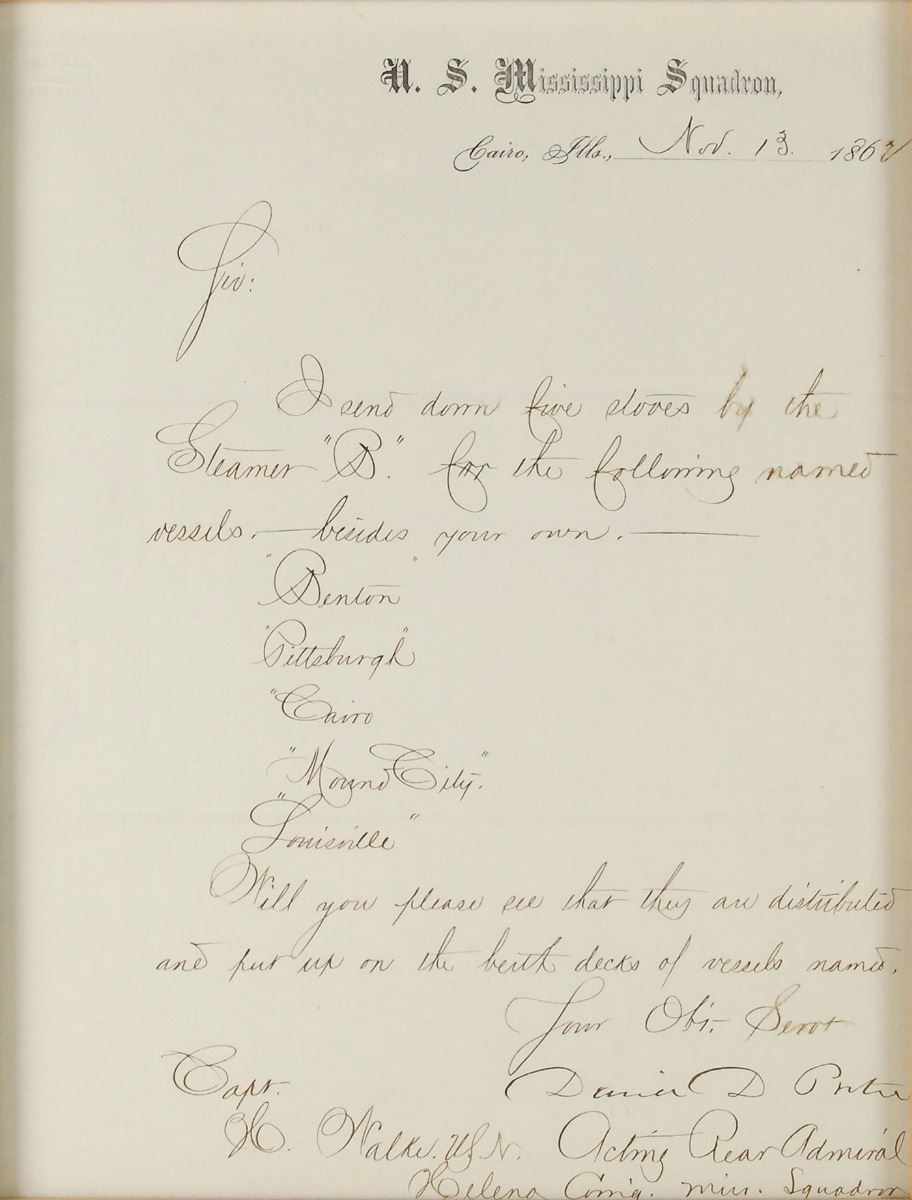 U. S. Mississippi Squadron,
Cairo, Ills., Nov. 13. 1862
Sir:
I send down five stoves by the
Steamer "B". for the following named
vessels. — besides your own. —
"Benton"
"Pittsburgh"
"Cairo
"Mound City".
"Louisville"
Will you please see that they are distributed
and put up on the berth decks of vessels named.
Your Obt. Servt
Capt. David D Porter
H. Walke. USN. Acting Rear Admiral
Helena Comg. Miss. Squadron